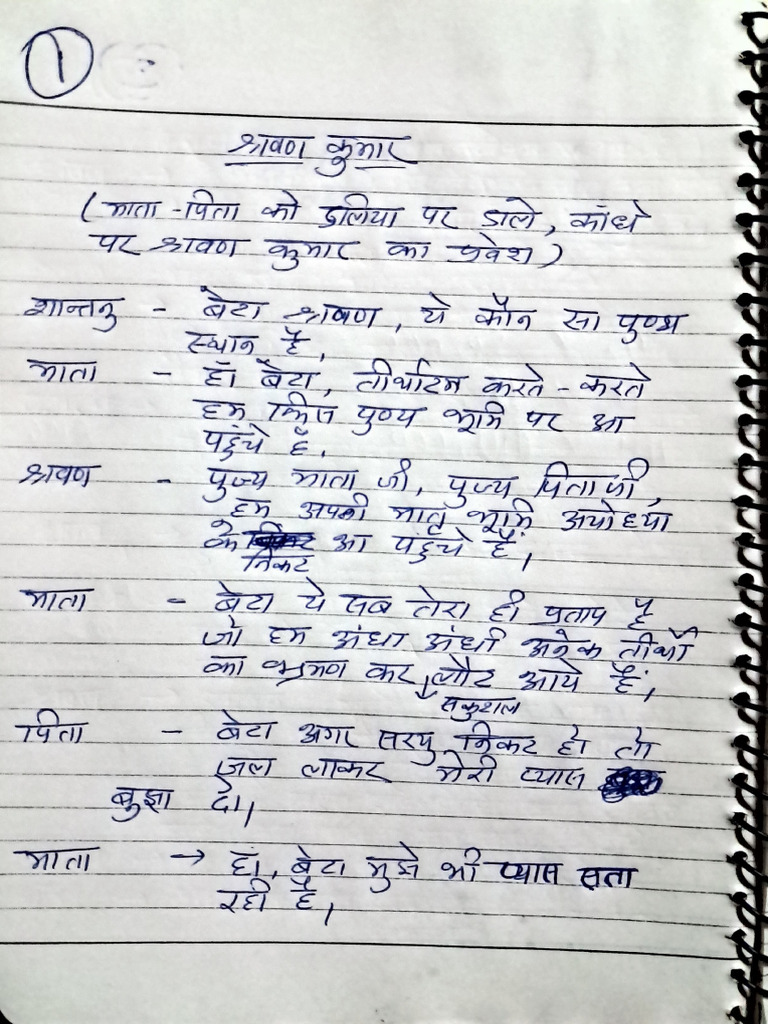 १
श्रवण कुमार
(माता - पिता को डलिया पर डाले, कांधे
पर श्रवण कुमार का प्रवेश)
शान्तनु - बेटा श्रवण, ये कौन सा पुण्य
स्थान है,
माता - हाँ बेटा, तीर्थाटन करते - करते
हम किस पुण्य भूमि पर आ
पहुंचे हैं,
श्रवण - पुज्य माता जी, पुज्य पिताजी,
हम अपनी मातृ भूमि अयोध्या
के निकट आ पहुंचे हैं,
माता - बेटा ये सब तेरा ही प्रताप है
जो हम अंधा अंधी अनेक तीर्थों
का भ्रमण कर सकुशल लौट आये हैं,
पिता - बेटा अगर सरयु निकट हो तो
जल लाकर मेरी प्यास
बुझा दो,
माता → हां, बेटा मुझे भी प्यास सता
रही है,